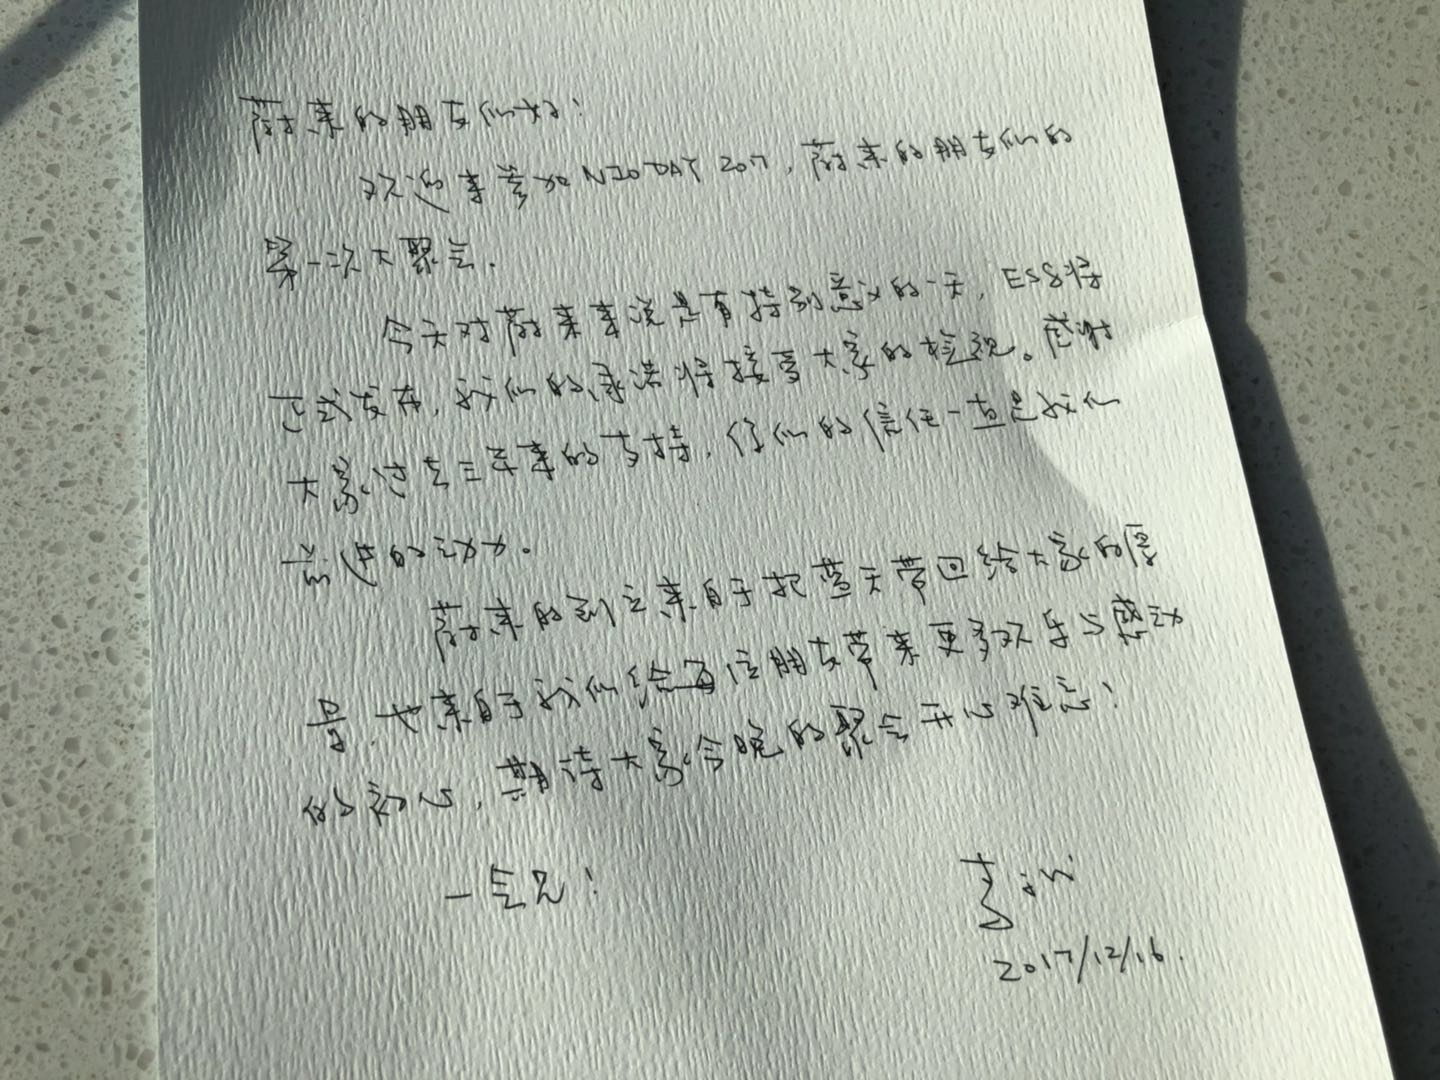 蔚来的朋友们好：
欢迎来参加NIO DAY 2017，蔚来的朋友们的
第一次大聚会.
今天对蔚来来说是有特别意义的一天，ES8将
正式发布，我们的承诺将接受大家的检视。感谢
大家过去三年来的支持，你们的信任一直是我们
前进的动力。
蔚来的创立来自于把蓝天带回给大家的愿
景，也来自于我们给每位朋友带来更多欢乐与感动
的初心，期待大家今晚的聚会开心难忘！
一会见！
李斌
2017/12/16.